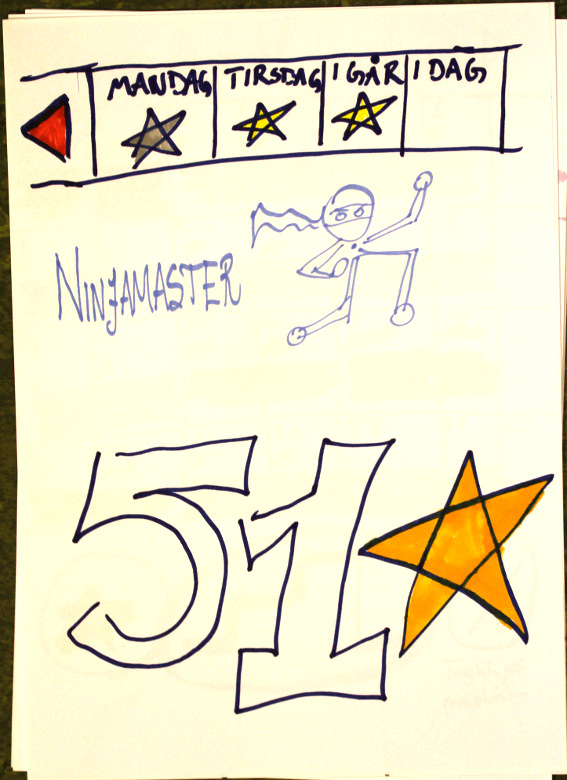 MANDAG TIRSDAG I GÅR I DAG
NINJAMASTER
51